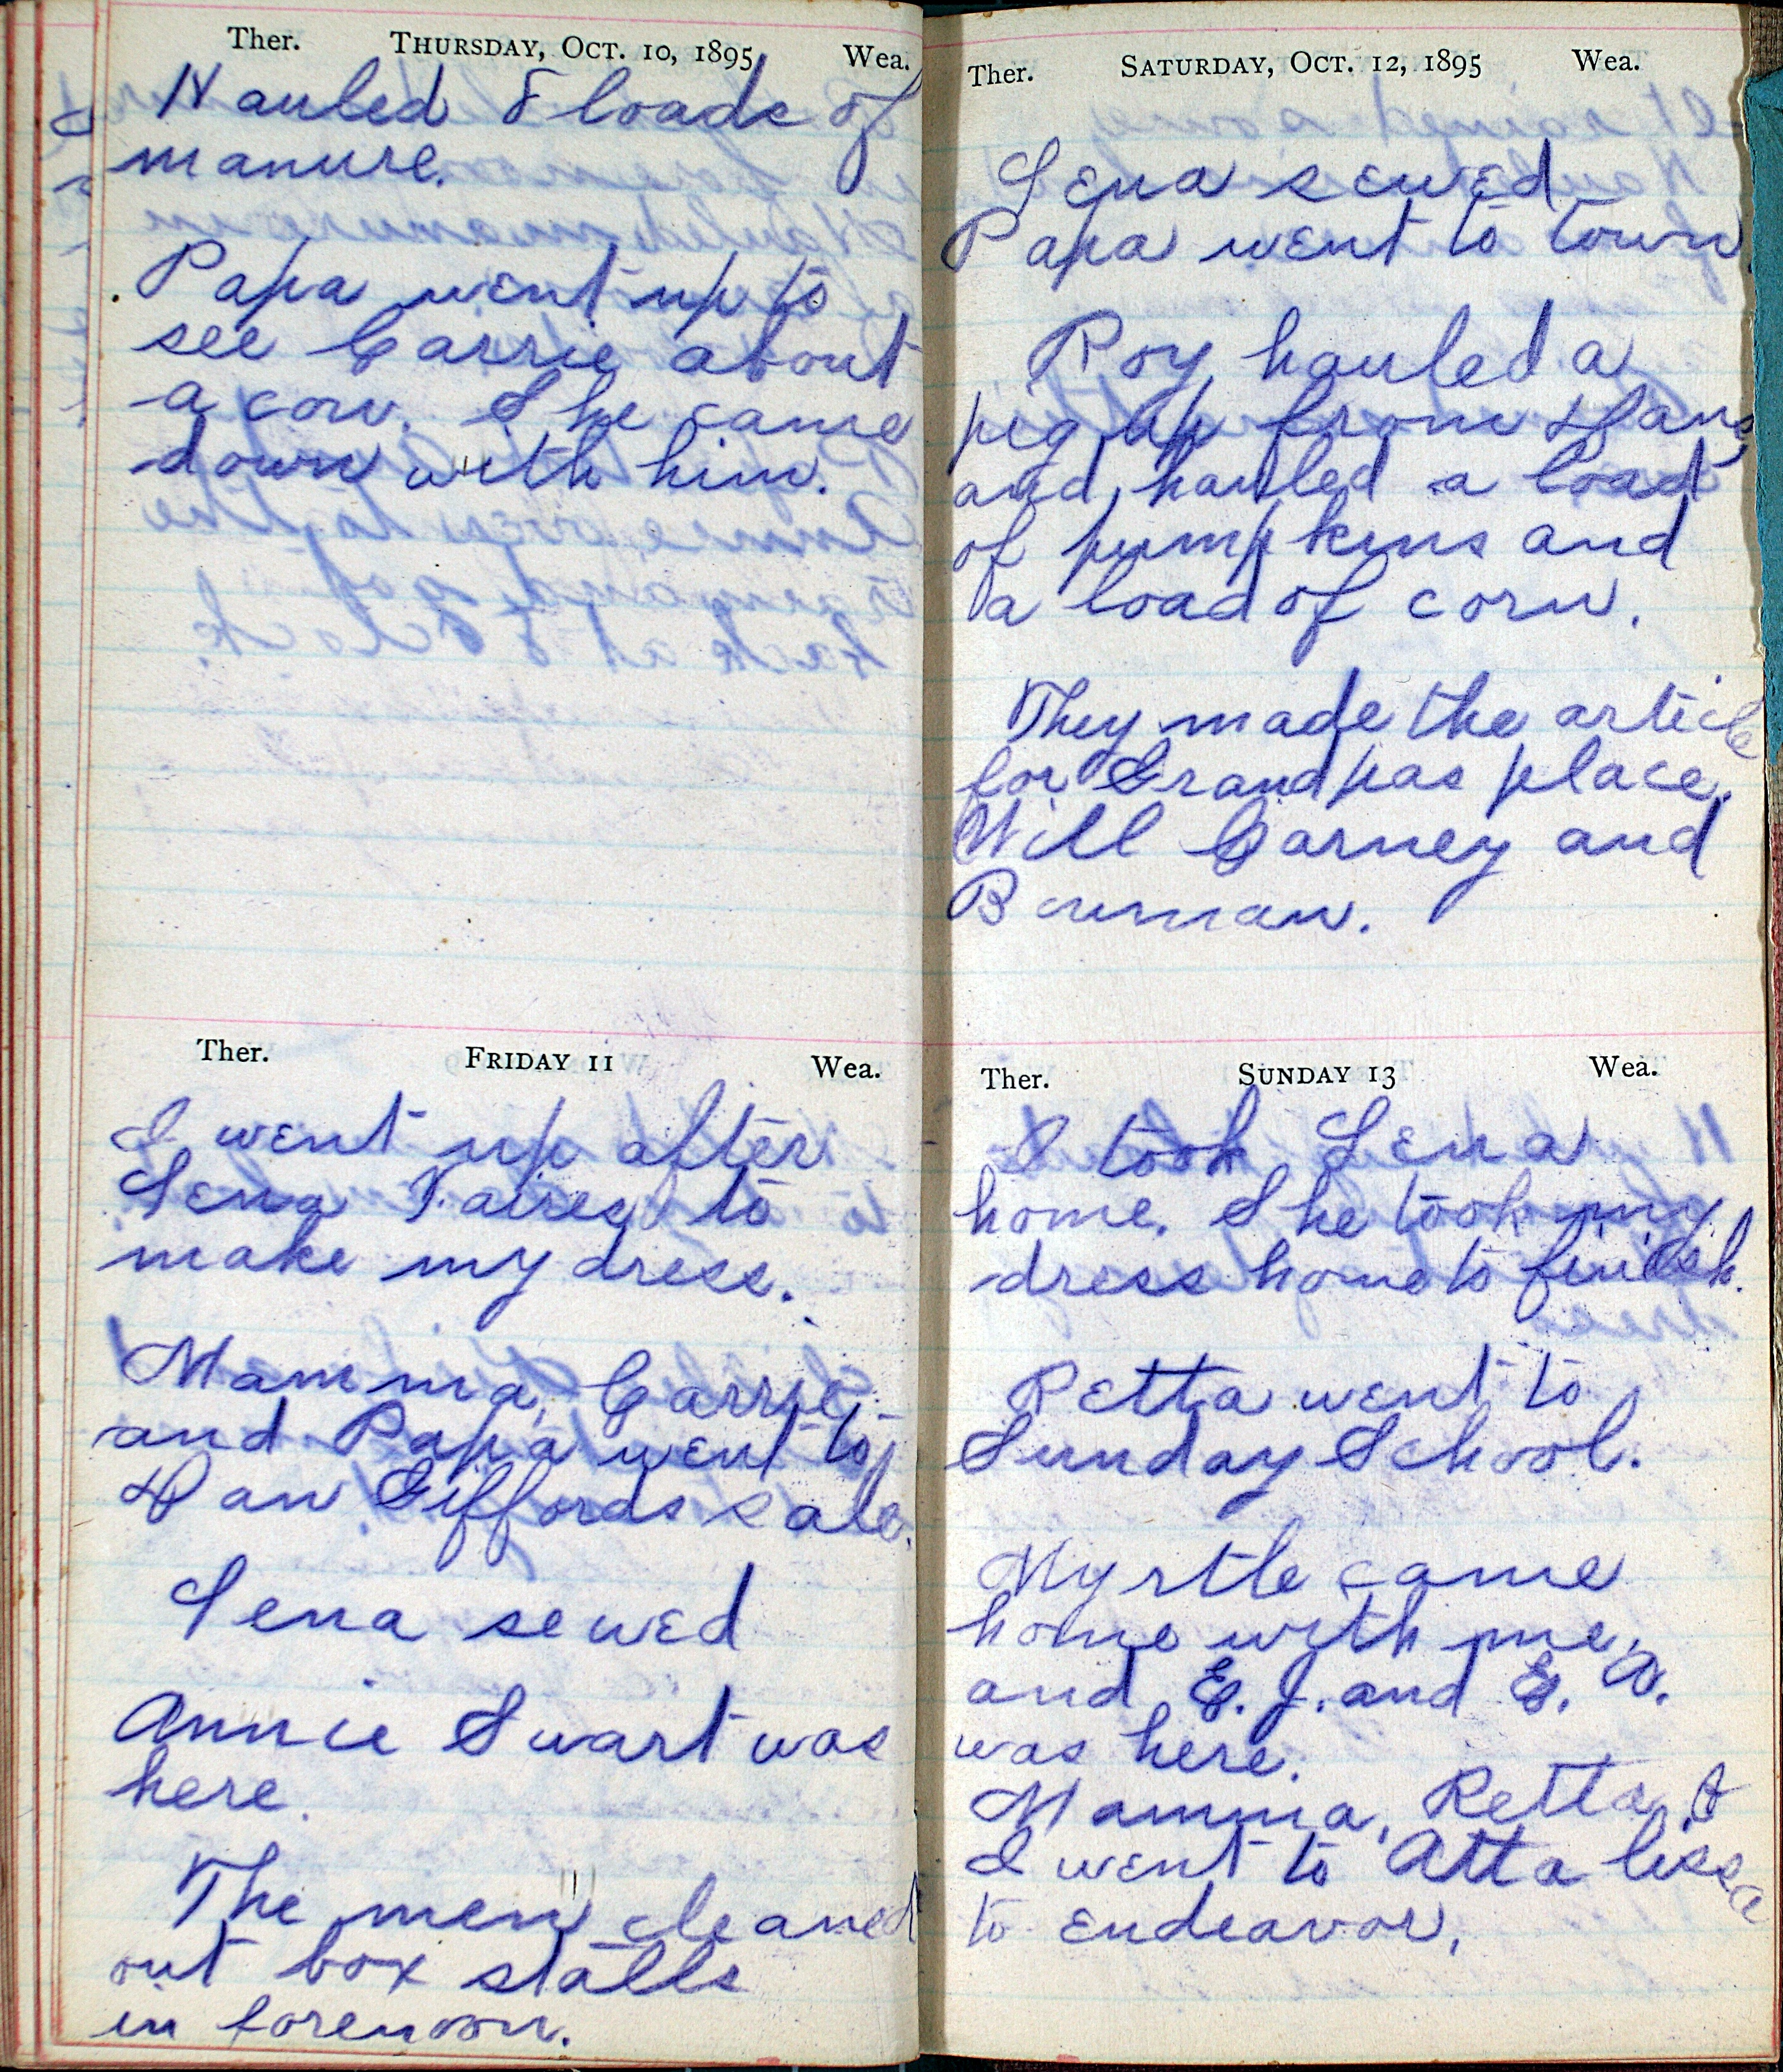 Ther. THURSDAY, OCT. 10, 1895 Wea.
Hauled 8 loads of
manure.
Papa went up to
see Carrie about
a cow. She came
down with him.
Ther. FRIDAY 11 Wea.
I went up after
Lena Faires to
make my dress.
Mamma, Carrie
and Papa went to
Dan Giffords sale.
Lena sewed
Annie Swart was
here.
The men cleaned
out box stalls
in forenoon.
Ther. SATURDAY, OCT. 12, 1895 Wea.
Lena sewed
Papa went to town
Roy hauled a
pig up from Dans
and hauled a load
of pumpkins and
a load of corn.
They made the article
for Grandpas place.
Will Carney and
Bowman.
Ther. SUNDAY 13 Wea.
I took Lena
home. She took my
dress home to finish.
Retta went to
Sunday School.
Myrtle came
home with me.
and E. J. and E. A.
was here.
Mamma, Retta &
I went to Attalissa
to Endeavor.